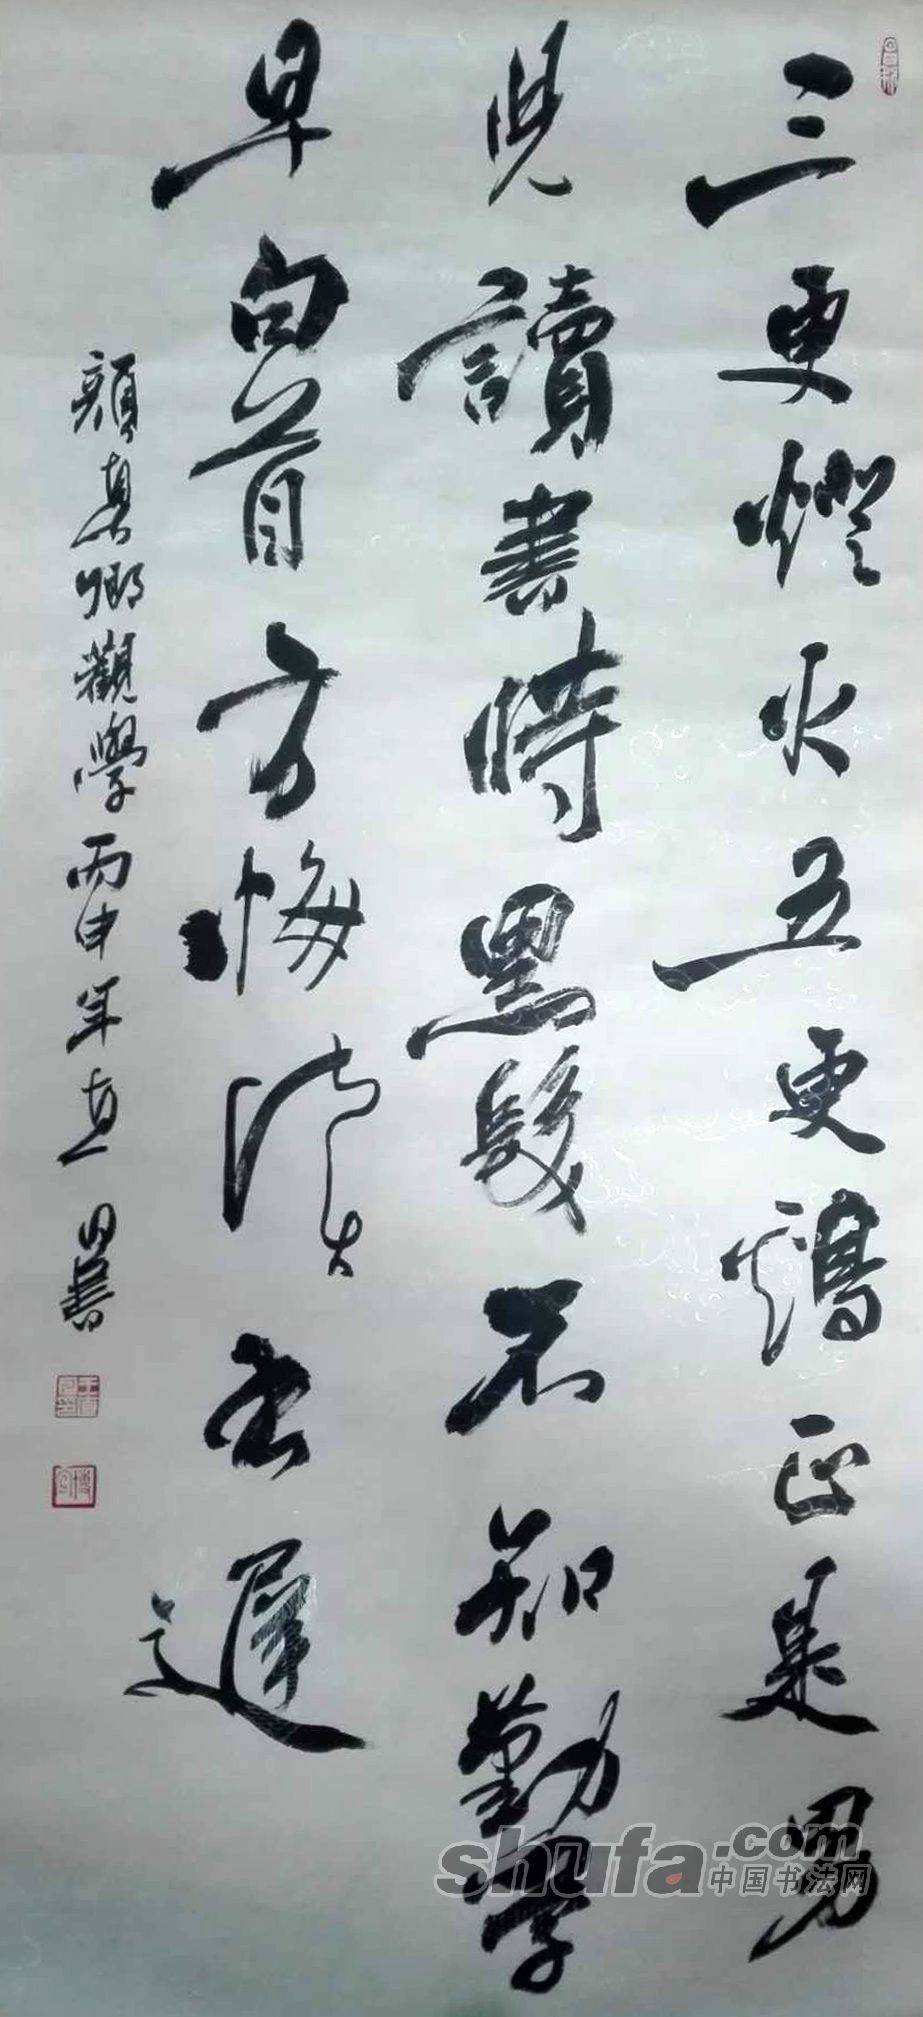 三更燈火五更鷄正是男
児讀書時黑髮不知勤學
早白首方悔讀書遲
顏真卿觀學丙申年直書
shufa.com
中国书法网